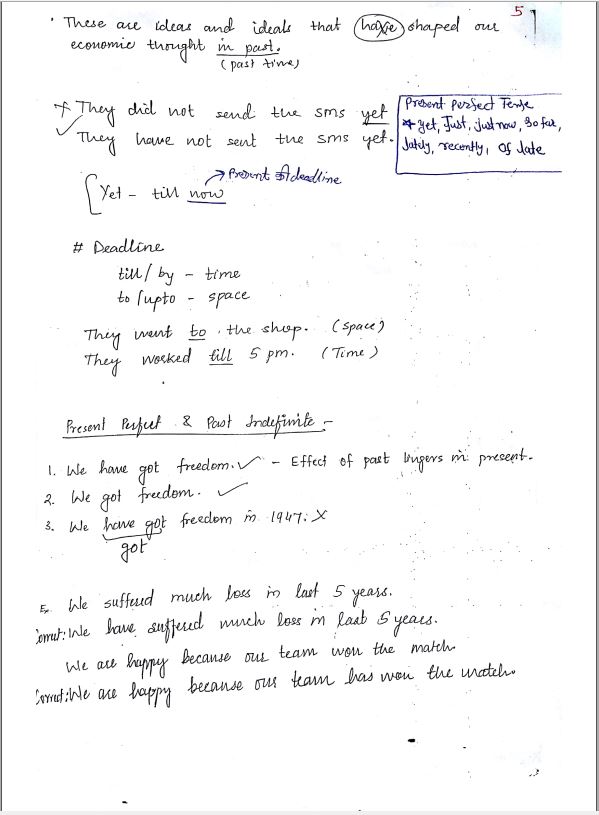 5
• These are ideas and ideals that have shaped our
economic thought in past.
(past time)
× They did not send the sms yet
✓ They have not sent the sms yet.
Present Perfect Tense
* yet, Just, just now, so far,
lately, recently, of late
Yet - till now → Present deadline
# Deadline
till / by - time
to / upto - space
They went to the shop. (space)
They worked till 5 pm. (Time)
Present Perfect & Past Indefinite -
1. We have got freedom. ✓ - Effect of past lingers in present.
2. We got freedom. ✓
3. We have got freedom in 1947. X
got
Ex. We suffered much loss in last 5 years.
Correct: We have suffered much loss in last 5 years.
We are happy because our team won the match.
Correct: We are happy because our team has won the match.